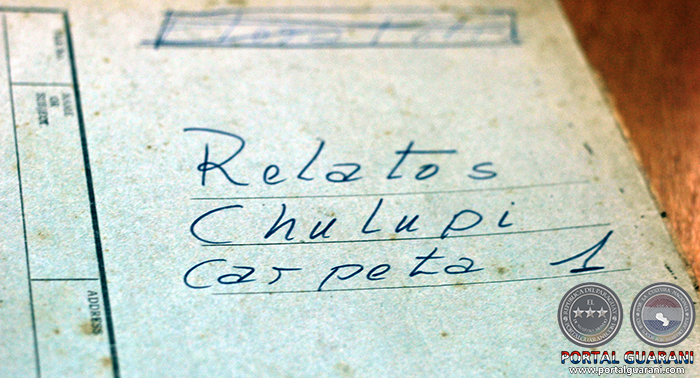 Relatos
Chulupi
Carpeta 1
NAME
OR
SUBJECT
ADDRESS
EL
PORTAL GUARANI
www.portalguarani.com